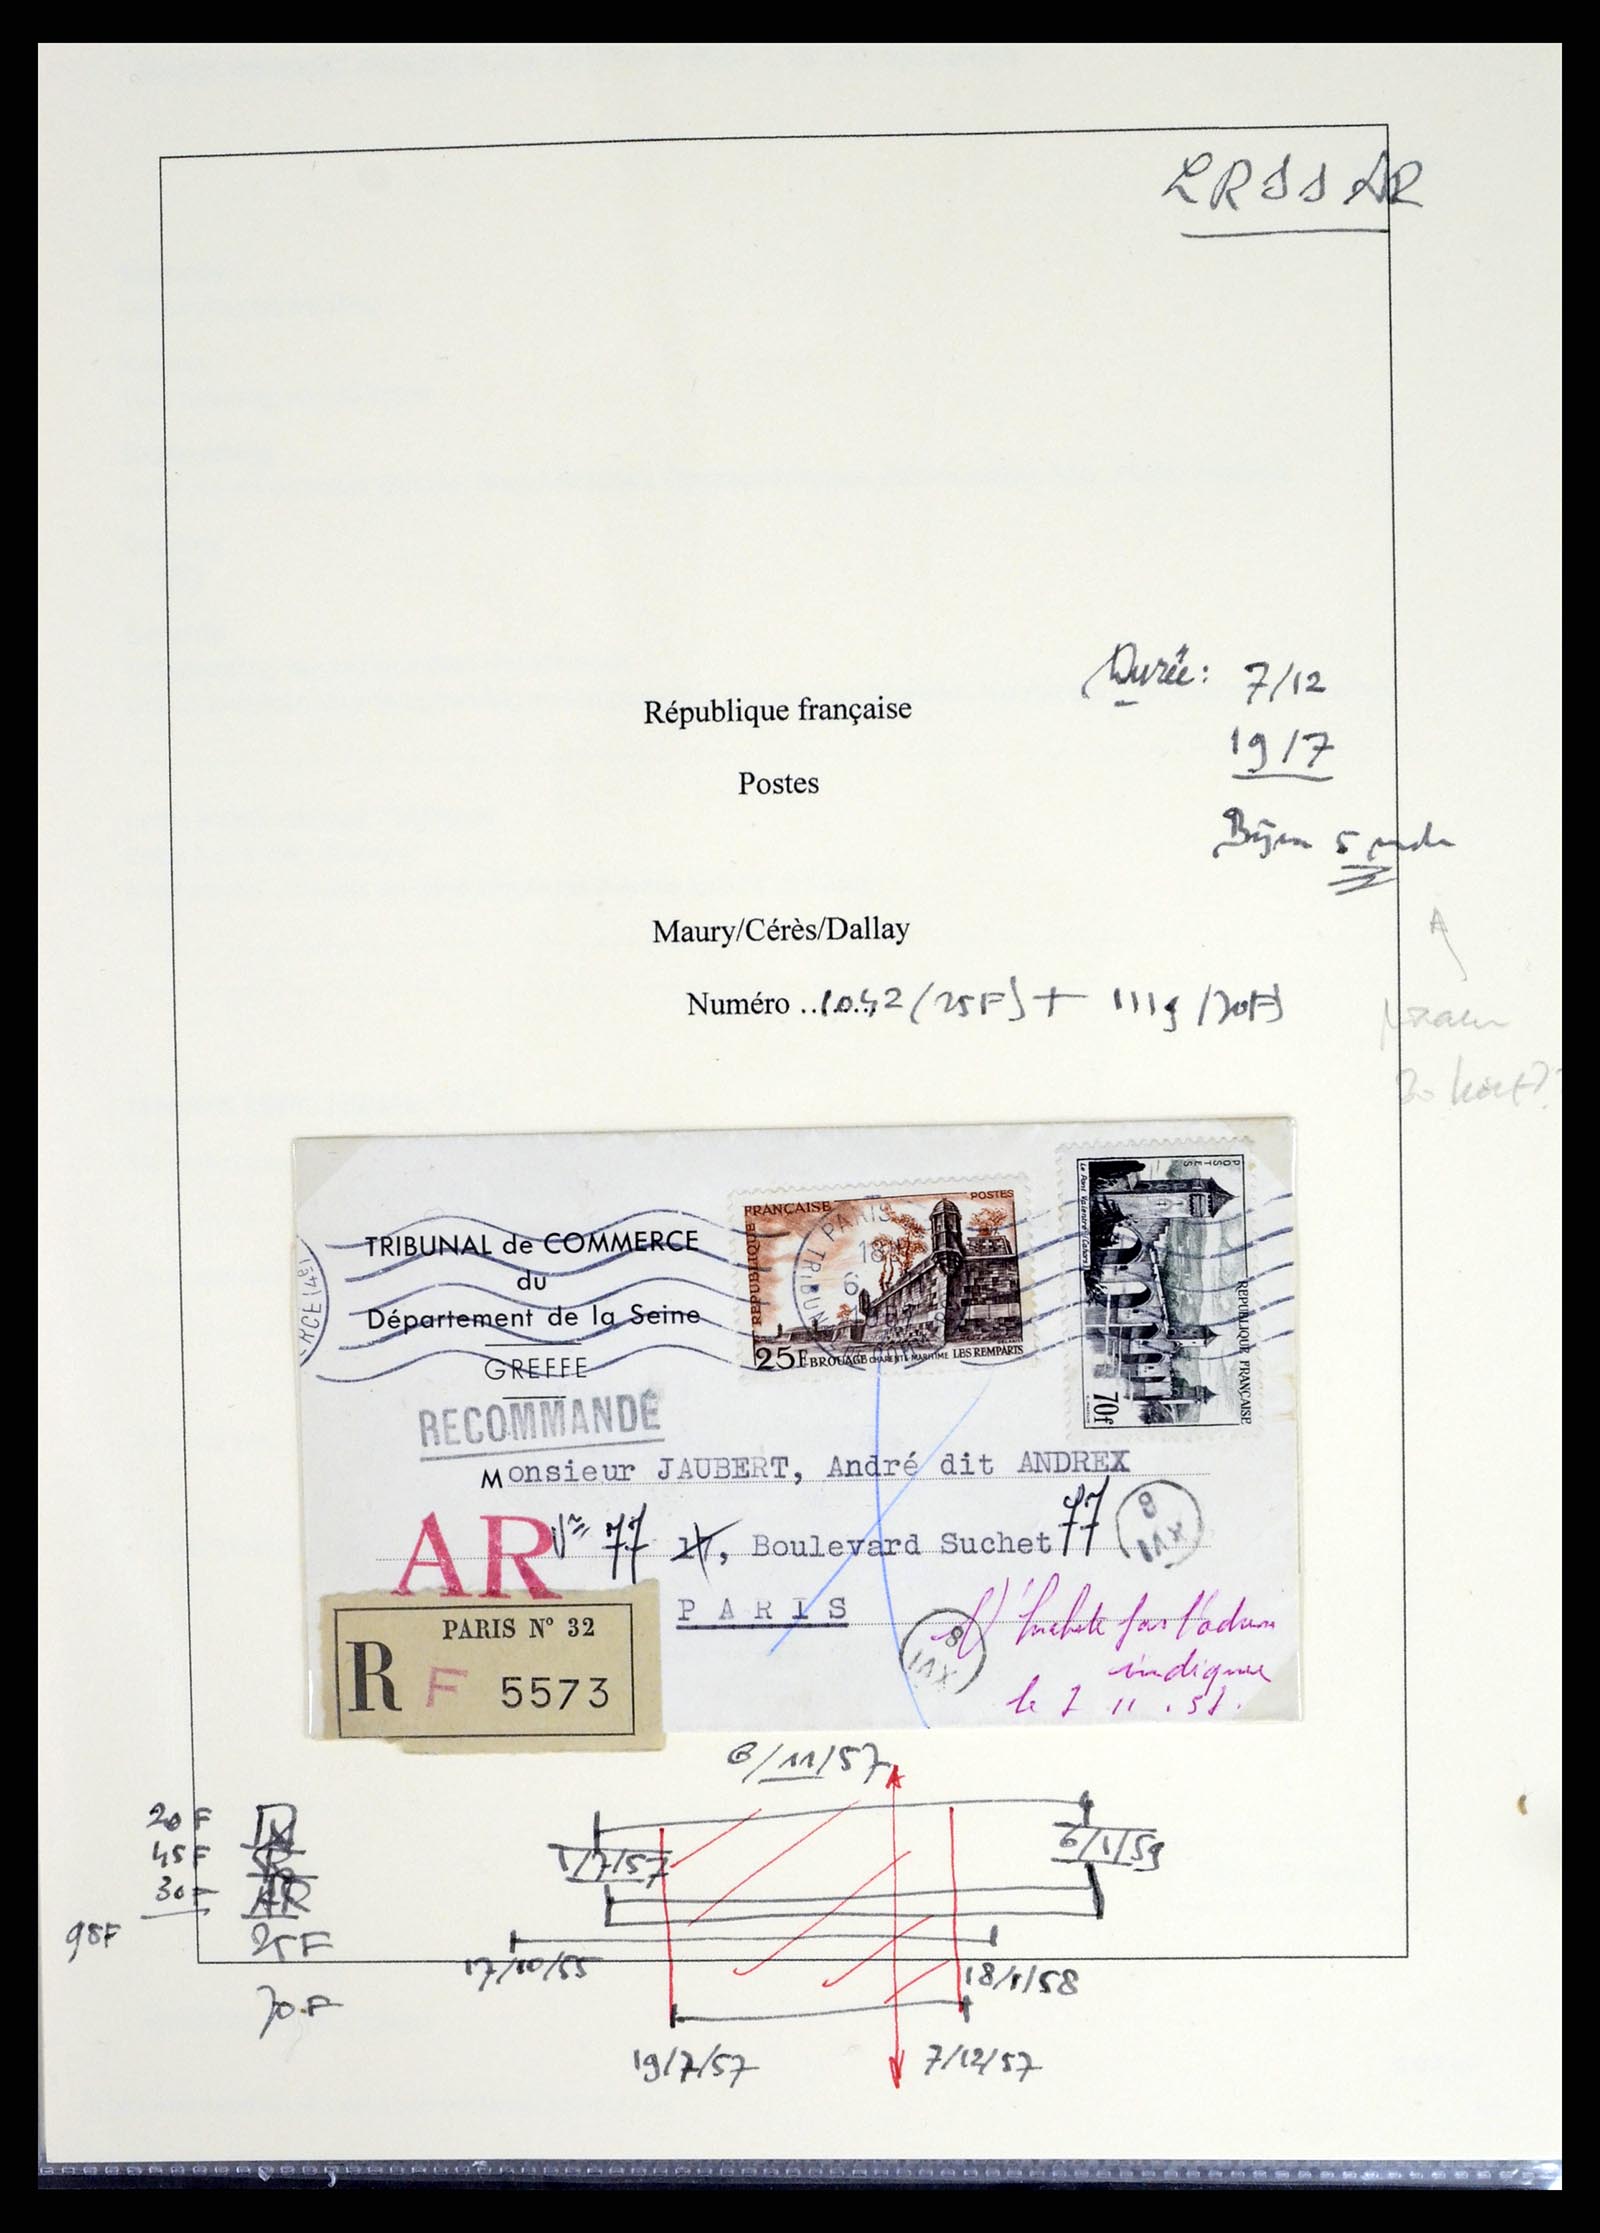 LRSSAR
Durée: 7/12
19/7
République française
Postes
5
Maury/Cérès/Dallay
Numéro ..1042 (25F) + 1119 (70F)
RÉPUBLIQUE FRANÇAISE
POSTES
PARIS
18H
6
1957
TRIBUN
25F BROUAGE CHARENTE-MARITIME LES REMPARTS
POSTES
Le Pont Valentré Cahors
REPUBLIQUE FRANÇAISE
70f
RCE (4e)
TRIBUNAL de COMMERCE
du
Département de la Seine
GREFFE
RECOMMANDÉ
Monsieur JAUBERT, André dit ANDREX
AR
77 17, Boulevard Suchet 77
8
XVI
PARIS
8
XVI
l'adresse
indiquée
le 7 11. 57.
PARIS Nº 32
R F 5573
6/11/57
20 F R
45 F
30 F AR
95F
25F
70F
1/7/57
6/1/59
17/10/55
18/1/58
19/7/57
7/12/57